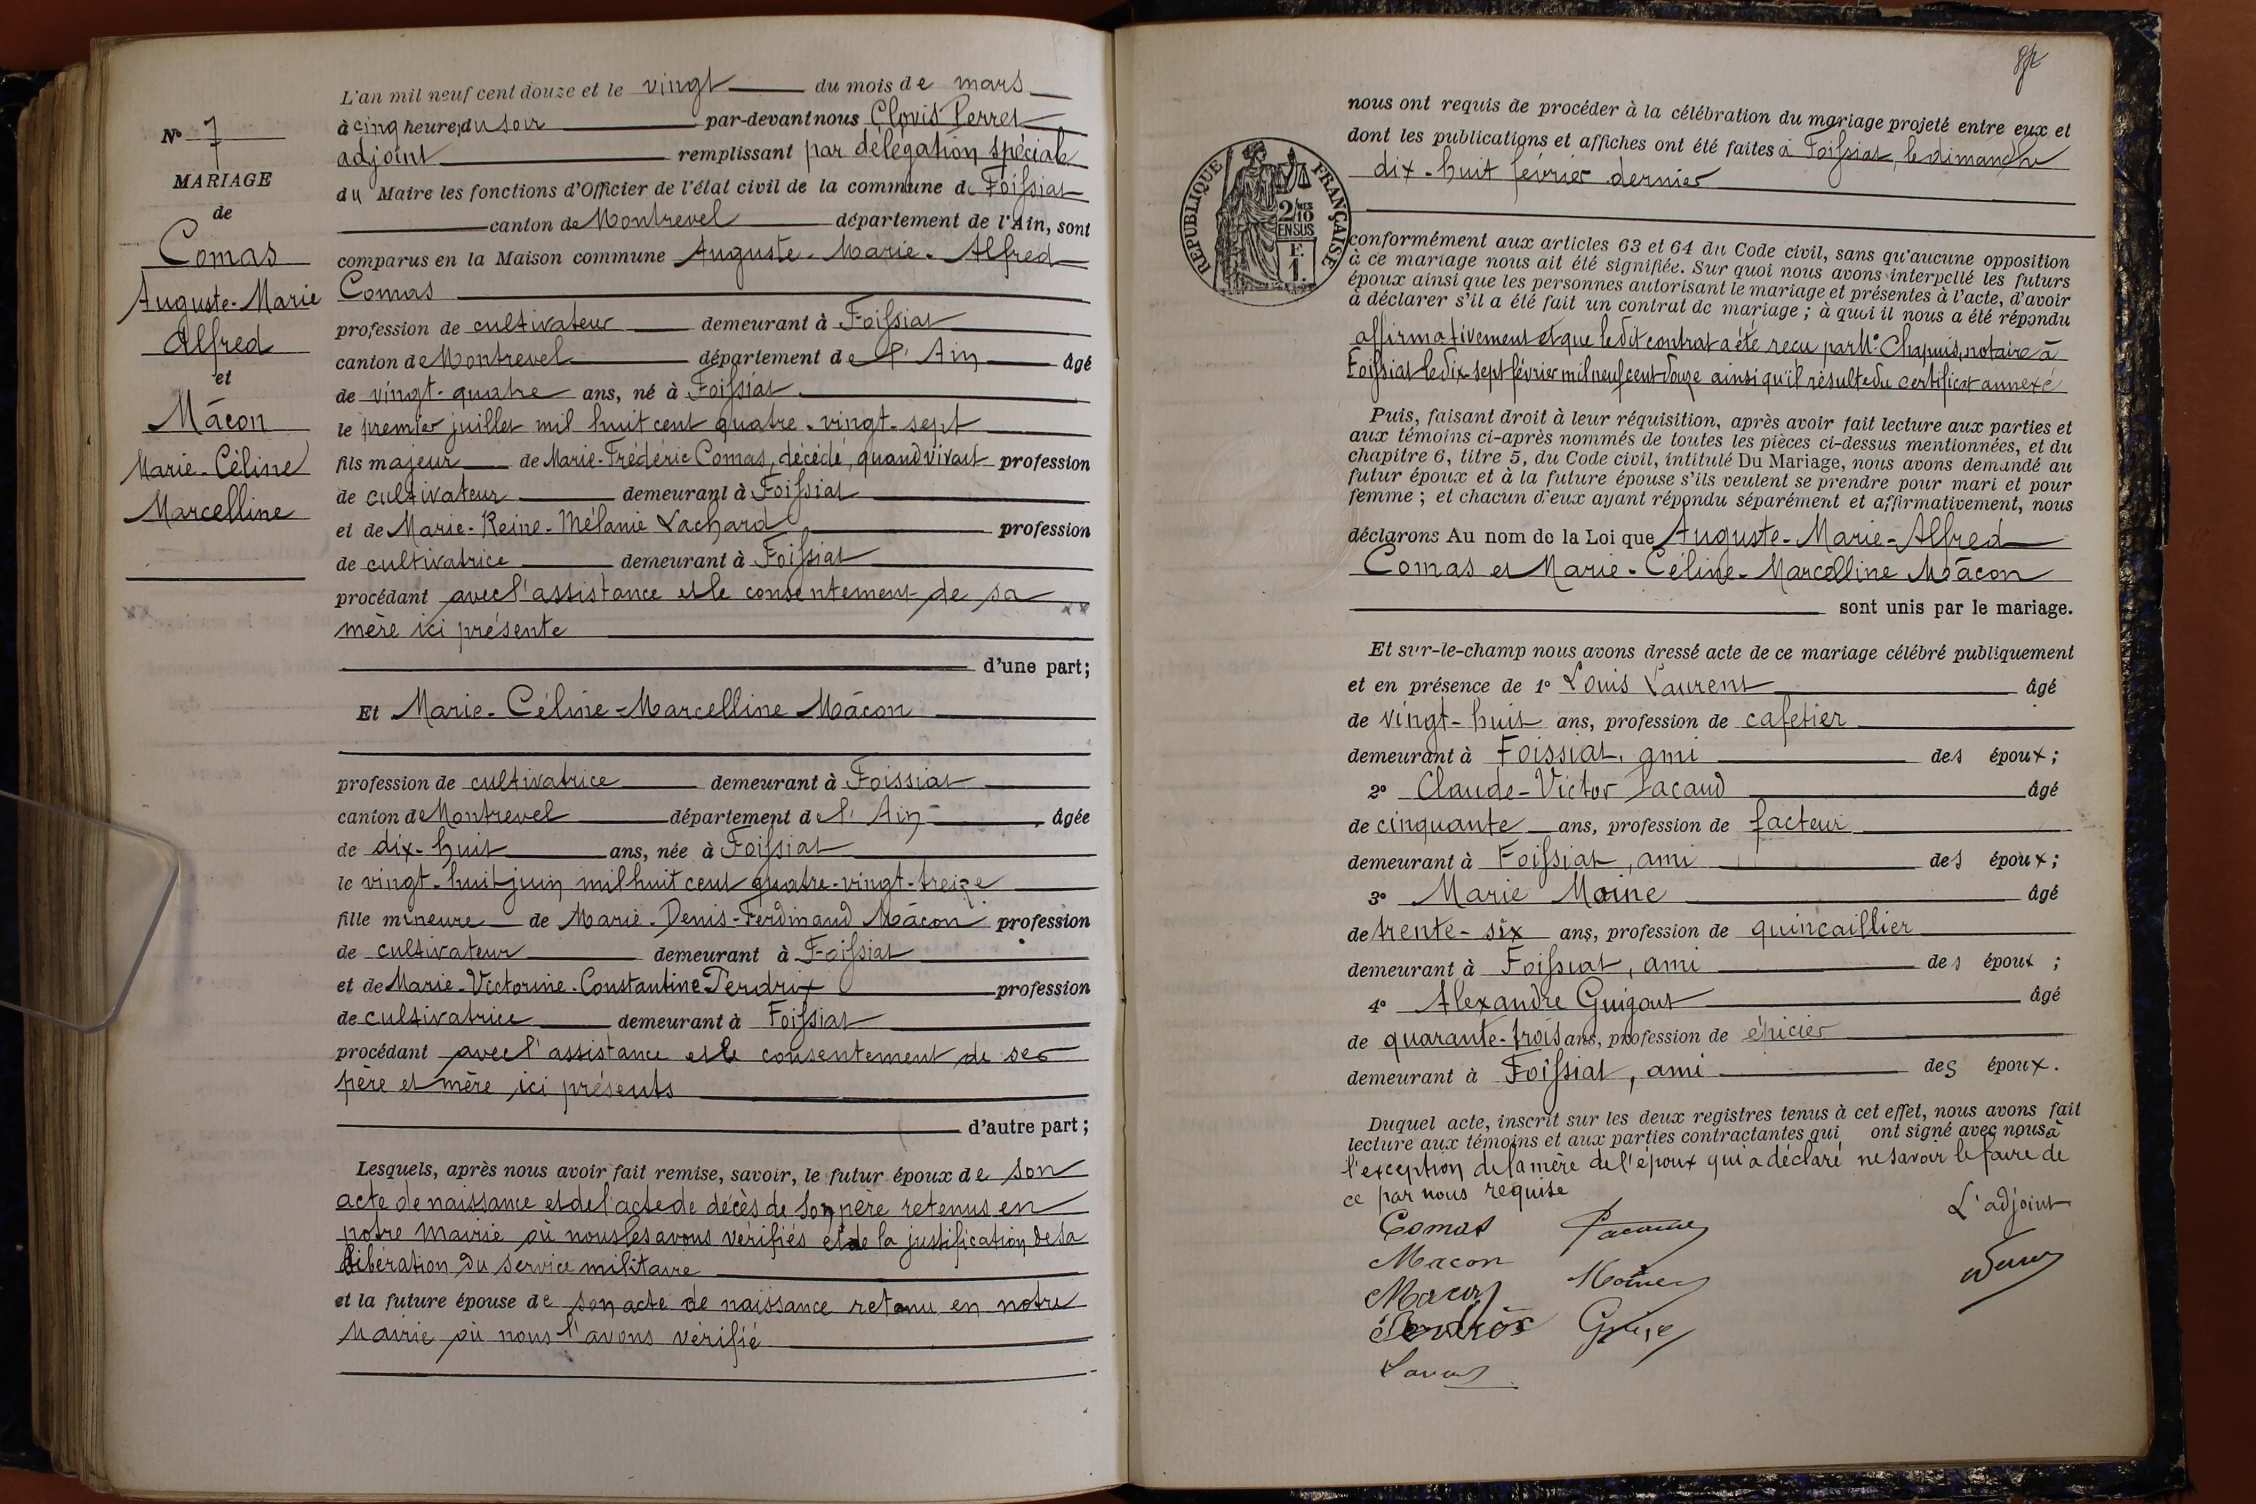 N° 7
MARIAGE
de
Comas
Auguste-Marie
Alfred
et
Mâcon
Marie-Céline
Marcelline
L'an mil neuf cent douze et le vingt du mois de mars
à cinq heures du soir par-devant nous Clovis Perret
adjoint remplissant par délégation spéciale
du Maire les fonctions d'Officier de l'état civil de la commune de Foissiat
canton de Montrevel département de l'Ain, sont
comparus en la Maison commune Auguste-Marie-Alfred
Comas
profession de cultivateur demeurant à Foissiat
canton de Montrevel département de l'Ain âgé
de vingt-quatre ans, né à Foissiat
le premier juillet mil huit cent quatre-vingt-sept
fils majeur de Marie-Frédéric Comas, décédé, quand vivait profession
de cultivateur demeurant à Foissiat
et de Marie-Reine-Mélanie Lachard profession
de cultivatrice demeurant à Foissiat
procédant avec l'assistance et le consentement de sa
mère ici présente
d'une part;
Et Marie-Céline-Marcelline Mâcon
profession de cultivatrice demeurant à Foissiat
canton de Montrevel département de l'Ain âgée
de dix-huit ans, née à Foissiat
le vingt-huit juin mil huit cent quatre-vingt-treize
fille mineure de Marie-Denis-Ferdinand Mâcon profession
de cultivateur demeurant à Foissiat
et de Marie-Victorine-Constantine Perdrix profession
de cultivatrice demeurant à Foissiat
procédant avec l'assistance et le consentement de ses
père et mère ici présents
d'autre part;
Lesquels, après nous avoir fait remise, savoir, le futur époux de son
acte de naissance et de l'acte de décès de son père retenus en
notre mairie où nous les avons vérifiés et de la justification de sa
libération du service militaire
et la future épouse de son acte de naissance retenu en notre
mairie où nous l'avons vérifié
nous ont requis de procéder à la célébration du mariage projeté entre eux et
dont les publications et affiches ont été faites à Foissiat, le dimanche
dix-huit février dernier
RÉPUBLIQUE FRANÇAISE
2/10 MES
EN SUS
F.
1.
conformément aux articles 63 et 64 du Code civil, sans qu'aucune opposition
à ce mariage nous ait été signifiée. Sur quoi nous avons interpellé les futurs
époux ainsi que les personnes autorisant le mariage et présentes à l'acte, d'avoir
à déclarer s'il a été fait un contrat de mariage; à quoi il nous a été répondu
affirmativement et que ledit contrat a été reçu par Me Chapuis, notaire à
Foissiat le dix-sept février mil neuf cent douze ainsi qu'il résulte du certificat annexé
Puis, faisant droit à leur réquisition, après avoir fait lecture aux parties et
aux témoins ci-après nommés de toutes les pièces ci-dessus mentionnées, et du
chapitre 6, titre 5, du Code civil, intitulé Du Mariage, nous avons demandé au
futur époux et à la future épouse s'ils veulent se prendre pour mari et pour
femme; et chacun d'eux ayant répondu séparément et affirmativement, nous
déclarons Au nom de la Loi que Auguste-Marie-Alfred
Comas et Marie-Céline-Marcelline Mâcon
sont unis par le mariage.
Et sur-le-champ nous avons dressé acte de ce mariage célébré publiquement
et en présence de 1° Louis Laurent âgé
de vingt-huit ans, profession de cafetier
demeurant à Foissiat, ami des époux;
2° Claude-Victor Pacaud âgé
de cinquante ans, profession de facteur
demeurant à Foissiat, ami des époux;
3° Marie Moine âgé
de trente-six ans, profession de quincaillier
demeurant à Foissiat, ami des époux;
4° Alexandre Guigout âgé
de quarante-trois ans, profession de épicier
demeurant à Foissiat, ami des époux.
Duquel acte, inscrit sur les deux registres tenus à cet effet, nous avons fait
lecture aux témoins et aux parties contractantes qui ont signé avec nous à
l'exception de la mère de l'époux qui a déclaré ne savoir le faire de
ce par nous requise
L'adjoint
Comas
Macon
Macon